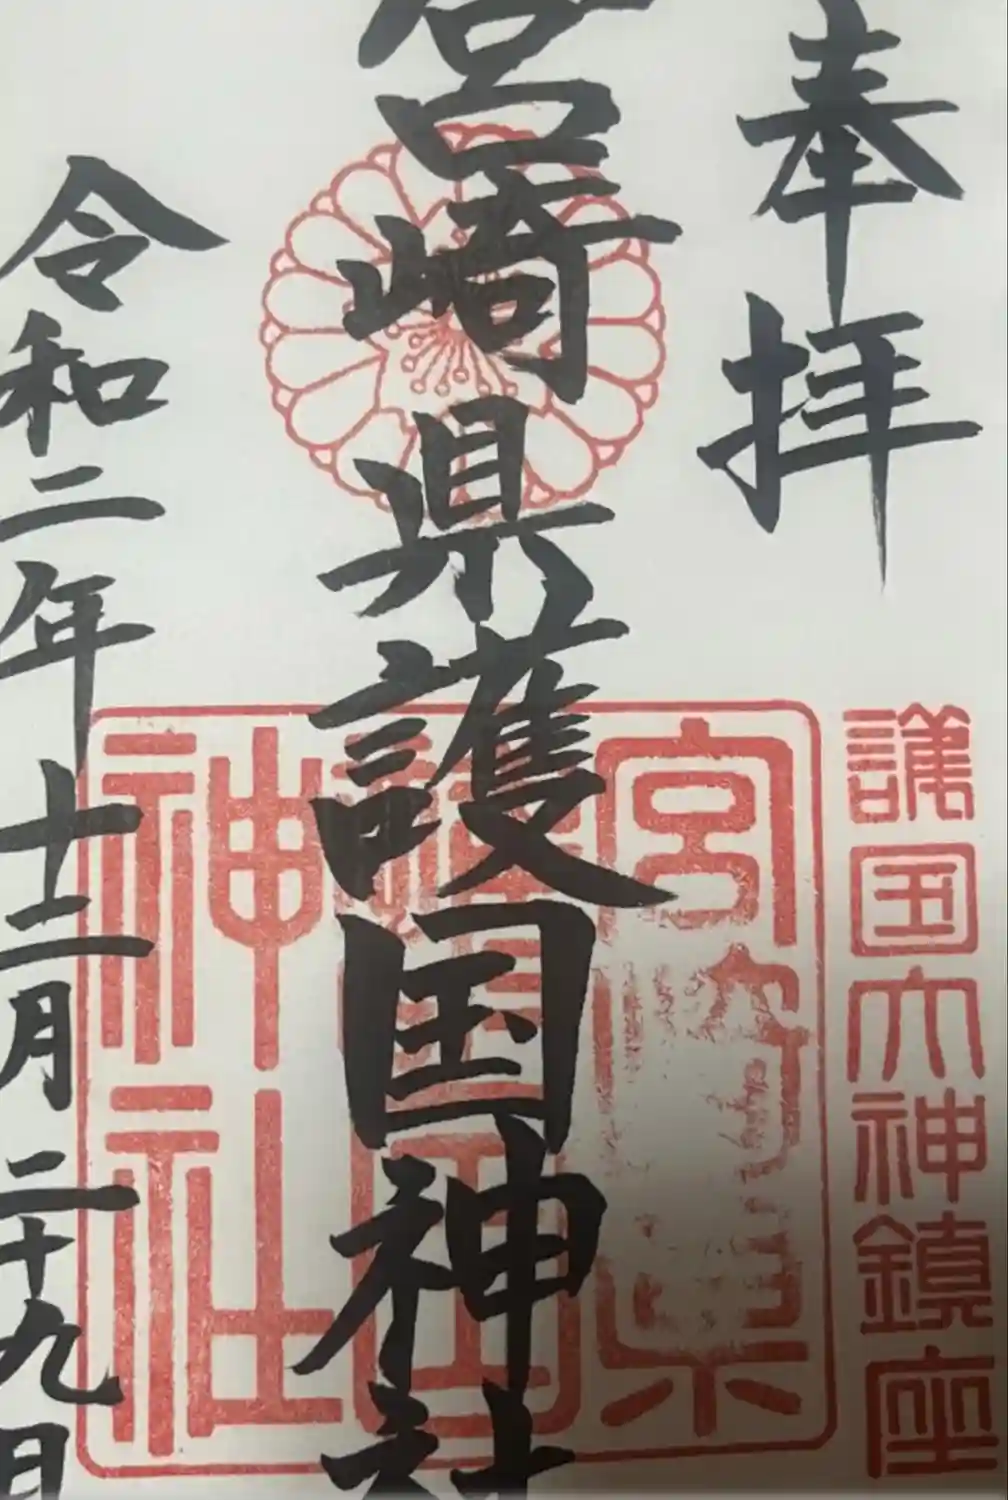 奉拝
護国大神鎮座
宮崎県護国神社
宮崎県
護国
神社
令和二年十二月二十九日